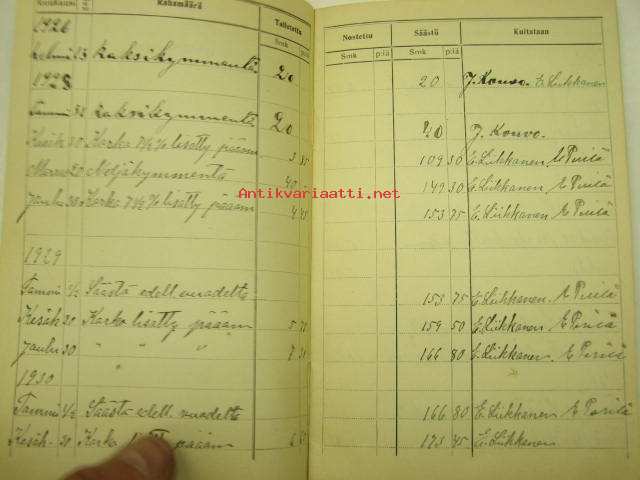 Kuukausi Rahamäärä Talletettu
Smk p:iä
1926
Helmi 13 kaksikymmentä. 20
1928
Tammi kaksikymmentä. 20
Kesäk 30 Korko 7½ % lisätty pääom 3
Marras 20 Neljäkymmentä 40
Joulu 30 Korko 7½ % lisätty pääom 4 45
1929
Tammi ½ Säästö edell. vuodelta
Kesäk 30 Korko lisätty pääom 5 75
Joulu 30 " " " 7 30
1930
Tammi ½ Säästö edell. vuodelta
Kesäk. 30 Korko pääom 6
Nostettu Säästö Kuitataan
Smk p:iä Smk p:iä
20 J. Kouvo. E Liikkanen
20 J. Kouvo.
109 30 E. Liikkanen E Pirilä
149 30 E. Liikkanen E Pirilä
153 75 E. Liikkanen E Pirilä
153 75 E. Liikkanen. E Pirilä
159 50 E. Liikkanen E Pirilä
166 80 E. Liikkanen E Pirilä
166 80 E. Liikkanen E Pirilä
173 45 E. Liikkanen
Antikvariaatti.net